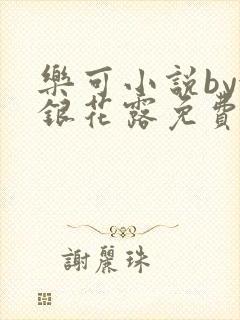 樂可小說by
銀花露免費
謝麗珠